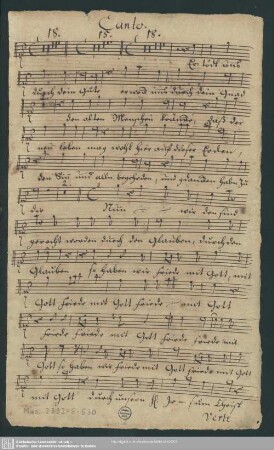 Canto.
18. 15. 18.
Ertödt uns
durch dein Güte, erweck uns durch dein Gnad
den alten Menschen kränke, daß der
neu leben mag wohl hier auf dieser Erden,
den Sinn und alle begehrden, und gdancken habn zu
dir Nun wir denn sind
gerecht worden durch den Glauben, durch den
Glauben so haben wir friede mit Gott, mit
Gott friede mit Gott friede mit Gott
friede friede mit Gott friede friede mit
Gott so haben wir friede mit Gott friede mit Gott
mit Gott durch unsern H Je- sum Christ
Verte